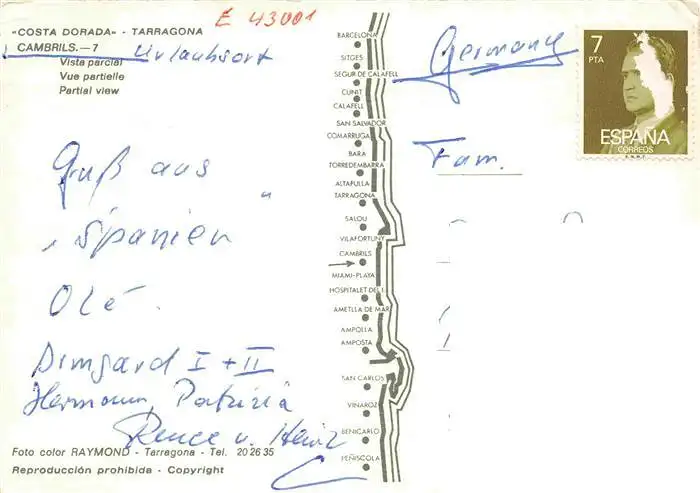 E 43001
«COSTA DORADA» - TARRAGONA
CAMBRILS.—7 Urlaubsort
Vista parcial
Vue partielle
Partial view
Gruß aus
„Spanien“
Olé.
Hermann, Patrizia
Renee u. Heinz
Foto color RAYMOND - Tarragona - Tel. 20 26 35
Reproducción prohibida - Copyright
BARCELONA
SITGES
SEGUR DE CALAFELL
CUNIT
CALAFELL
SAN SALVADOR
COMARRUGA
BARA
TORREDEMBARRA
ALTAFULLA
TARRAGONA
SALOU
VILAFORTUNY
CAMBRILS
MIAMI-PLAYA
HOSPITALET DEL I.
AMETLLA DE MAR
AMPOLLA
AMPOSTA
SAN CARLOS
VINAROZ
BENICARLO
PEÑISCOLA
Germany
Fam.
7
PTA
ESPAÑA
CORREOS